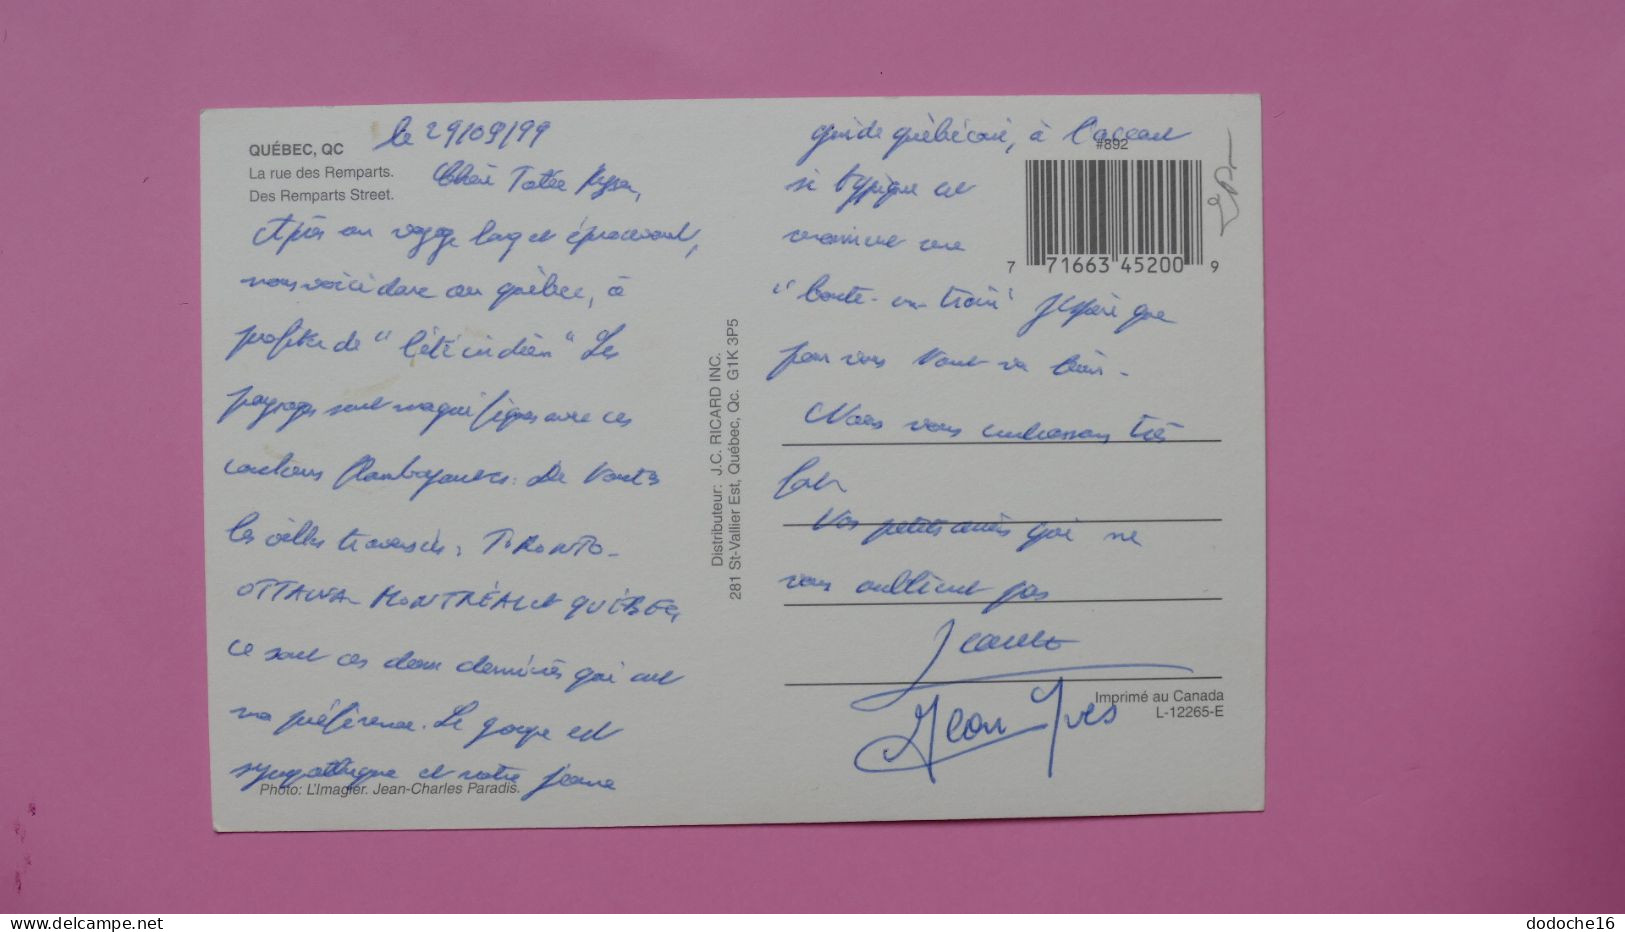 QUÉBEC, QC
La rue des Remparts.
Des Remparts Street.
le 29/09/99
Chère Tatée
Après un voyage long et éprouvant,
nous voici donc au québec, à
profiter de "l'été indien" Les
paysages sont magnifiques avec ces
couleurs flamboyantes. De toutes
les villes traversées, TORONTO-
OTTAWA-MONTRÉAL et QUÉBEC,
ce sont ces deux dernières qui ont
ma préférence. Le groupe est
sympathique et notre jeune
Photo: L'Imagier. Jean-Charles Paradis.
Distributeur: J.C. RICARD INC.
281 St-Vallier Est, Québec, Qc. G1K 3P5
guide québécois, à l'accent
#892
si typique est
vraiment un
7 71663 45200 9
"boute-en-train" J'espère que
pour vous tout va bien.
Nous vous embrassons très
fort
Vos petits amis qui ne
vous oublient pas
Jean Yves
Imprimé au Canada
L-12265-E
dodoche16